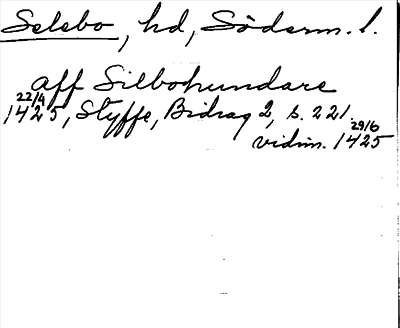 Selebo, hd, Söderm. l.
aff Silbohundare
22/4 1425, Styffe, Bidrag 2, s. 221.
vidim. 29/6 1425